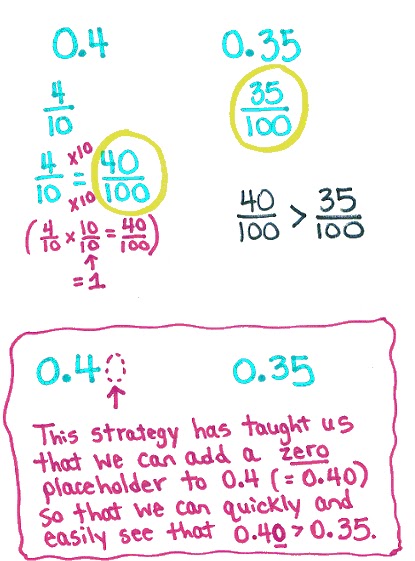 0.4 0.35
4/10 35/100
4/10 ×10 = ×10 40/100
(4/10 × 10/10 = 40/100) 40/100 > 35/100
↑
= 1
0.40 0.35
↑
This strategy has taught us
that we can add a zero
placeholder to 0.4 (= 0.40)
so that we can quickly and
easily see that 0.40 > 0.35.